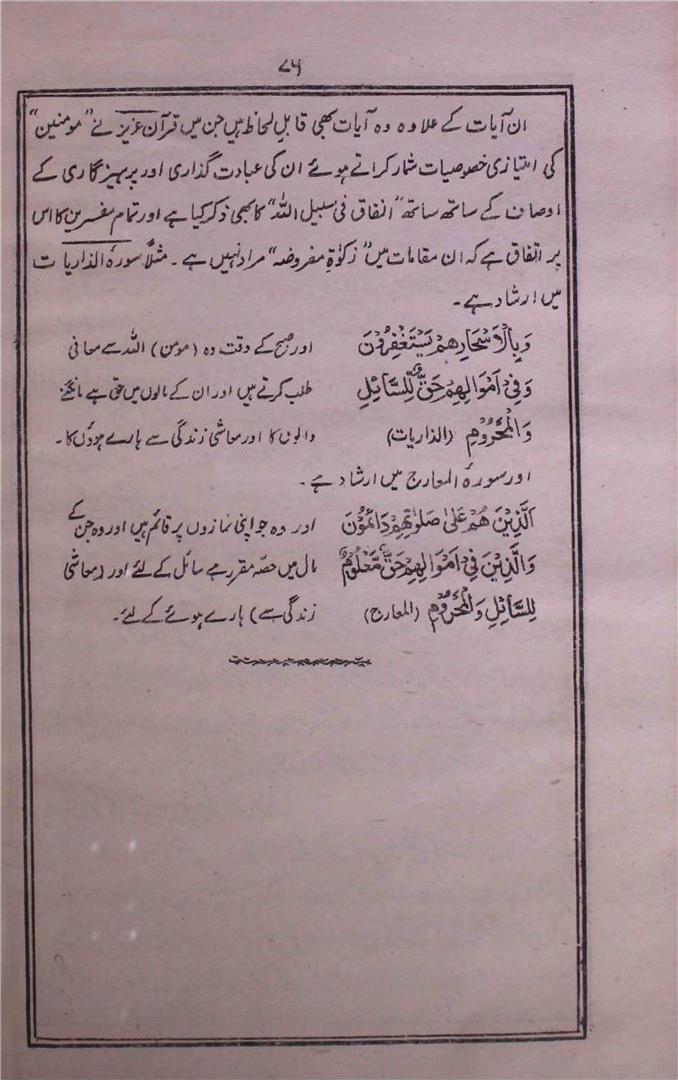 ۷۶
ان آیات کے علاوہ وہ آیات بھی قابلِ لحاظ ہیں جن میں قرآن عزیز نے "مومنین"
کی امتیازی خصوصیات شمار کراتے ہوئے ان کی عبادت گذاری اور پرہیزگاری کے
اوصاف کے ساتھ ساتھ "انفاق فی سبیل اللہ" کا بھی ذکر کیا ہے اور تمام مفسرین کا اس
پر اتفاق ہے کہ ان مقامات میں "زکوٰۃِ مفروضہ" مراد نہیں ہے۔ مثلاً سورۂ الذاریات
میں ارشاد ہے۔
وَبِالْاَسْحَارِهِمْ يَسْتَغْفِرُوْنَ اور صبح کے وقت وہ (مومن) اللہ سے معافی
وَفِیْ اَمْوَالِهِمْ حَقٌّ لِّلسَّآئِلِ طلب کرتے ہیں اور ان کے مالوں میں حق ہے مانگنے
وَالْمَحْرُوْمِ (الذاریات) والوں کا اور معاشی زندگی سے ہارے ہوؤں کا۔
اور سورۂ المعارج میں ارشاد ہے۔
اَلَّذِيْنَ هُمْ عَلٰی صَلٰوتِهِمْ دَآئِمُوْنَ اور وہ جو اپنی نمازوں پر قائم ہیں اور وہ جن کے
وَالَّذِيْنَ فِیْ اَمْوَالِهِمْ حَقٌّ مَّعْلُوْمٌ مال میں حصّہ مقرر ہے سائل کے لئے اور (معاشی
لِّلسَّآئِلِ وَالْمَحْرُوْمِ (المعارج) زندگی سے) ہارے ہوئے کے لئے۔